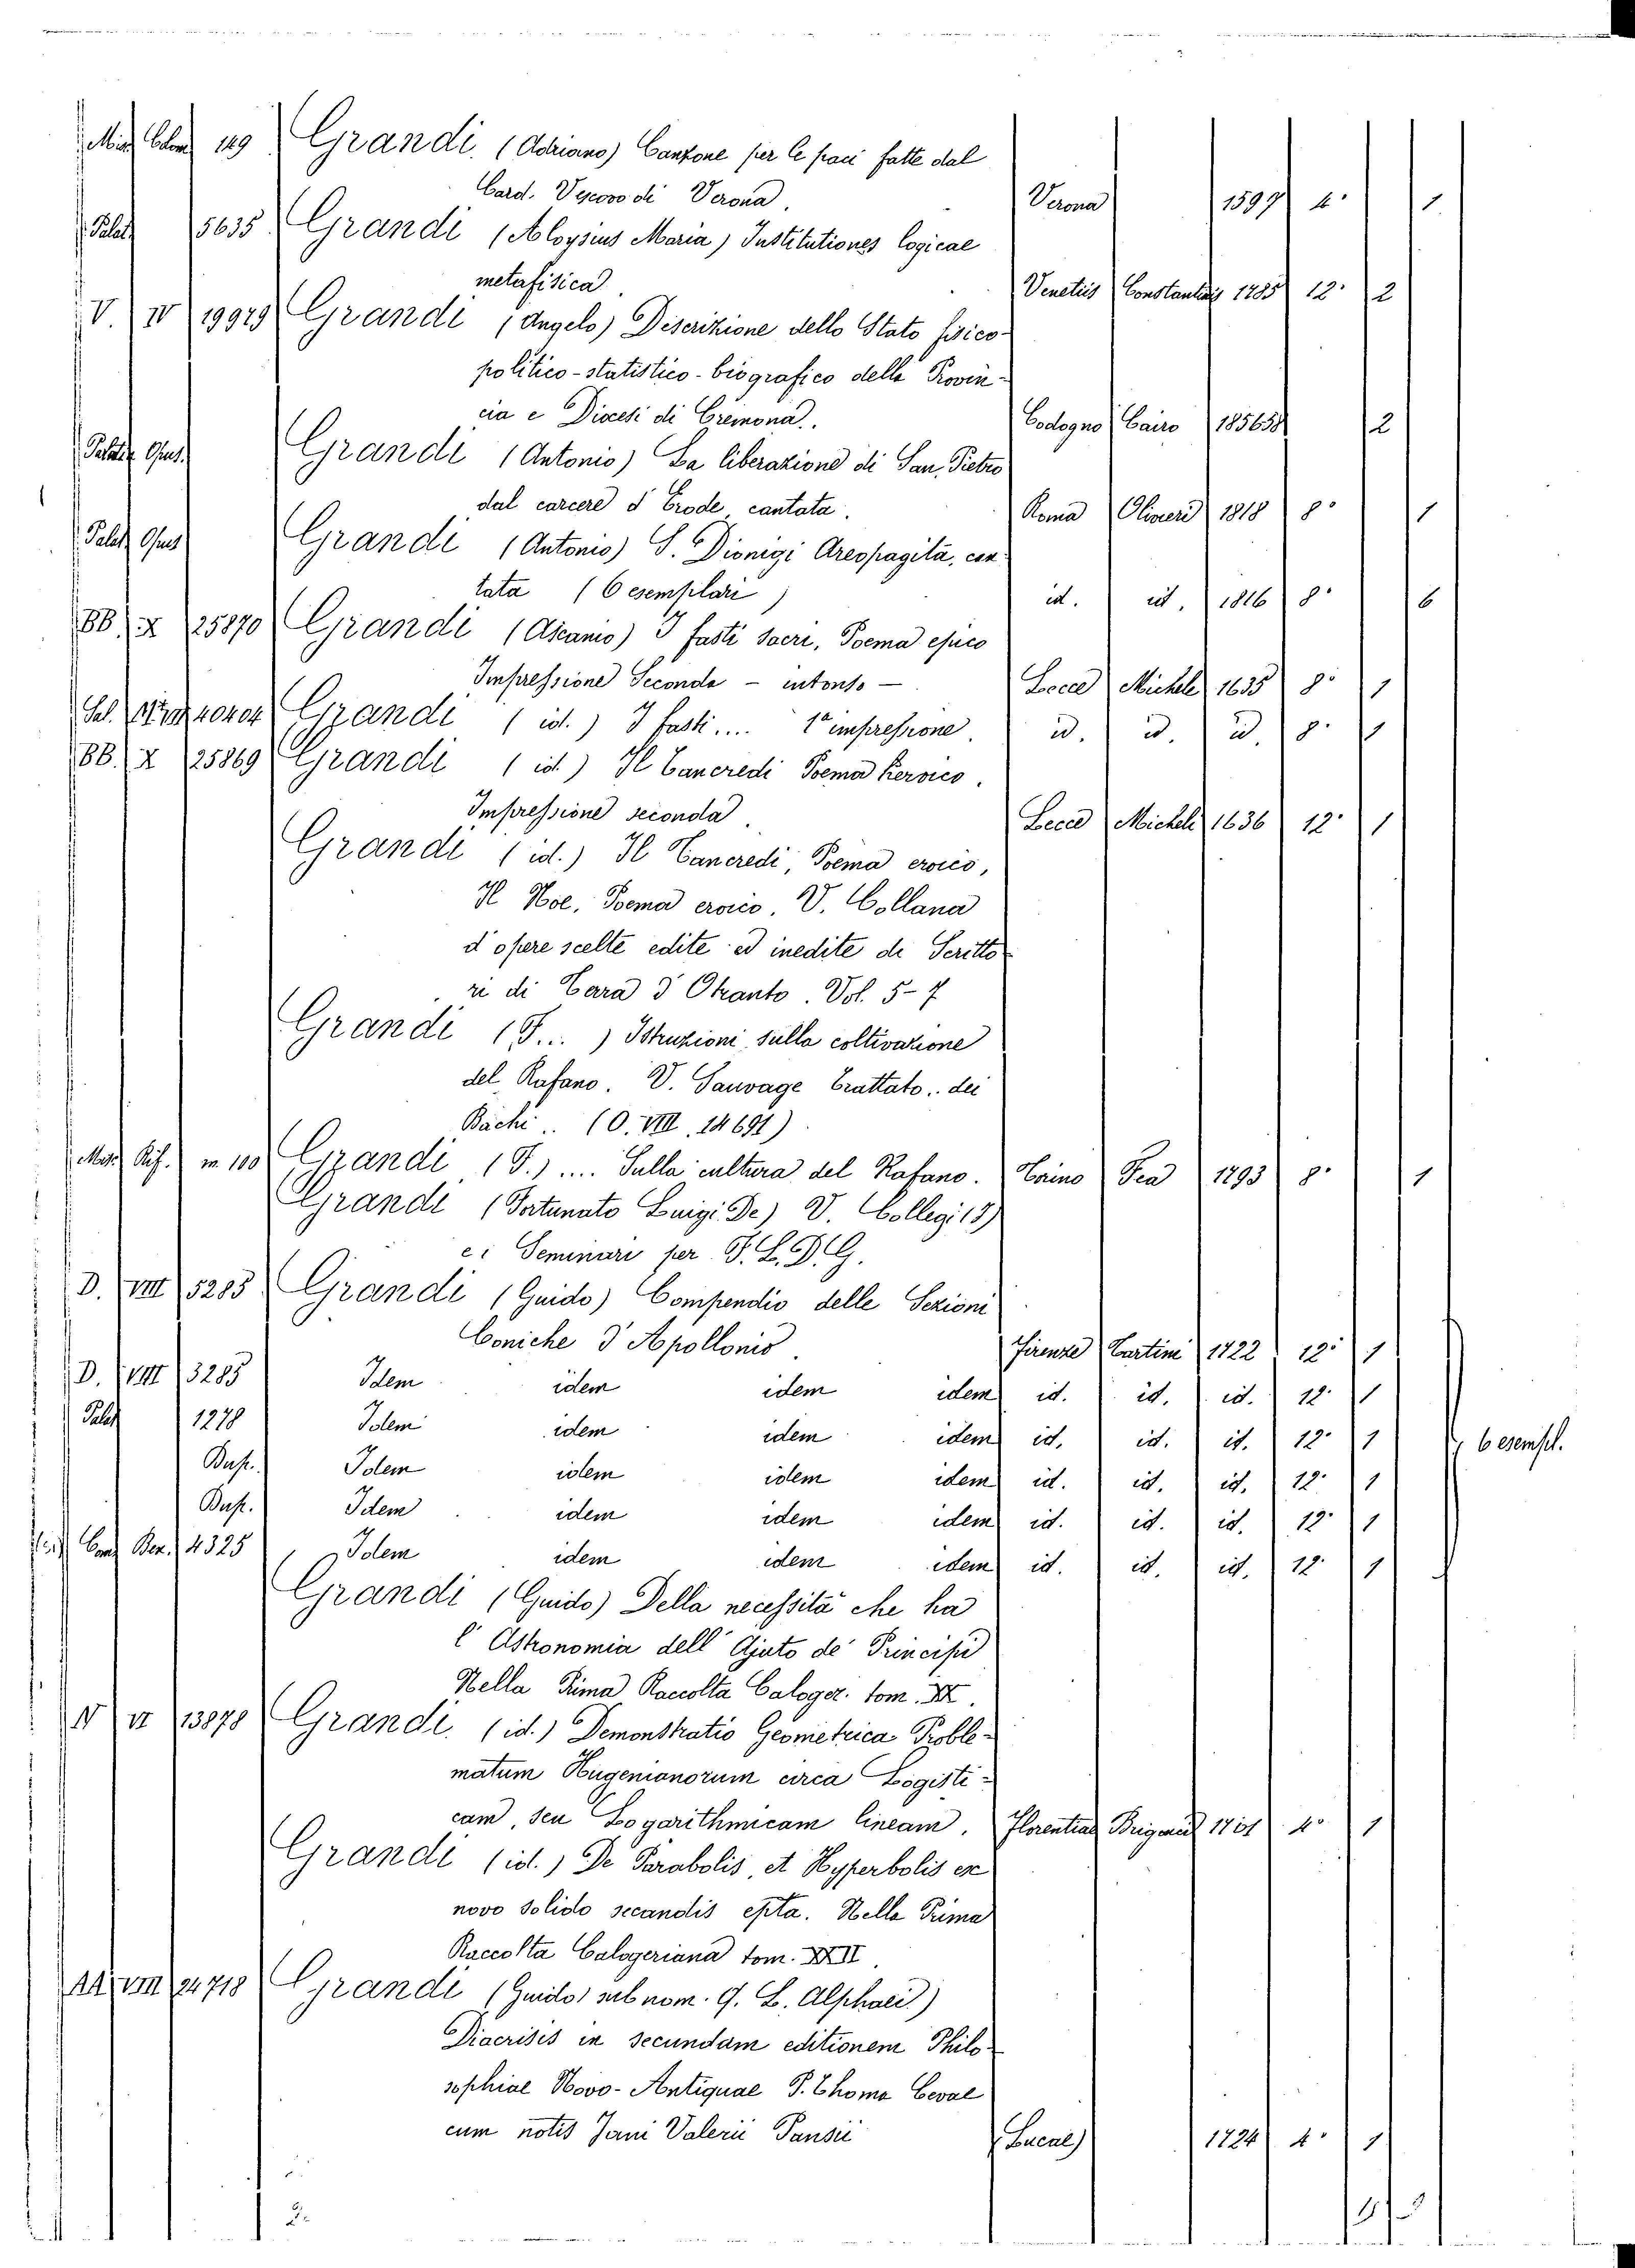 Misc. Colon 149 Grandi (Adriano) Canzone per le paci fatte dal
Card. Vescovo di Verona. Verona 1597 4° 1
Palat. 5635 Grandi (Aloysius Maria) Institutiones logicae
metafisica Venetiis Constantini 1785 12° 2
V. IV 19929 Grandi (Angelo) Descrizione dello Stato fisico-
politico-statistico-biografico della Provin-
cia e Diocesi di Cremona. Codogno Cairo 185658 2
Palat. Opus. Grandi (Antonio) La liberazione di San Pietro
dal carcere d'Erode, cantata. Roma Olivieri 1818 8° 1
Palat. Opus Grandi (Antonio) S. Dionigi Areopagita, can-
tata (6 esemplari) id. id. 1816 8° 6
BB. X 25870 Grandi (Ascanio) I fasti sacri, Poema epico
Impressione Seconda - intonso - Lecce Micheli 1635 8° 1
Sal. 40404 Grandi (id.) I fasti.... 1ª impressione. id. id. id. 8° 1
BB. X 25869 Grandi (id.) Il Tancredi Poema heroico.
Impressione seconda Lecce Micheli 1636 12° 1
Grandi (id.) Il Tancredi, Poema eroico,
Il Noe, Poema eroico. V. Collana
d'opere scelte edite ed inedite di Scritto-
ri di Terra d'Otranto. Vol. 5-7
Grandi (F...) Istruzioni sulla coltivazione
del Rafano. V. Sauvage Trattato.. dei
Bachi.. (O. VIII. 14691)
Misc. Rif. m. 100 Grandi (F.).... Sulla cultura del Rafano. Torino Fea 1793 8° 1
Grandi (Fortunato Luigi De) V. Collegi (I)
e i Seminari per F. L. D. G.
D. VIII 5285 Grandi (Guido) Compendio delle Sezioni
Coniche d'Apollonio. Firenze Tartini 1722 12° 1
D. VIII 3285 Idem idem idem idem id. id. id. 12° 1
Palat 1278 Idem idem idem idem id. id. id. 12° 1 6 esempl.
Busp. Idem idem idem idem id. id. id. 12° 1
Busp. Idem idem idem idem id. id. id. 12° 1
Ben. 4325 Idem idem idem idem id. id. id. 12° 1
Grandi (Guido) Della necessità che ha
l'Astronomia dell'Ajuto de' Principi
Nella Prima Raccolta Caloger. tom. XX.
N VI 13878 Grandi (id.) Demonstratio Geometrica Proble-
matum Hugenianorum circa Logisti-
cam, seu Logarithmicam lineam. Florentiae 1701 4° 1
Grandi (id.) De Parabolis, et Hyperbolis ex
novo solido secandis epta. Nella Prima
Raccolta Calogeriana tom. XXII.
AA. VIII 24718 Grandi (Guido, sub nom. Q. L. Alphaei)
Diacrisis in secundam editionem Philo-
sophiae Novo-Antiquae P. Thoma Cevae
cum notis Jani Valerii Pansii Lucae 1724 4° 1